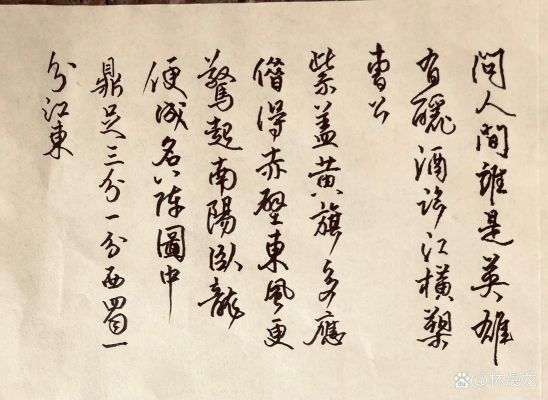 問人間誰是英雄
有釃酒临江橫槊
曹公
紫蓋黄旗多應
借得赤壁東風更
驚起南陽卧龍
便成名八陣圖中
鼎足三分一分西蜀一
分江東
@林漫龙